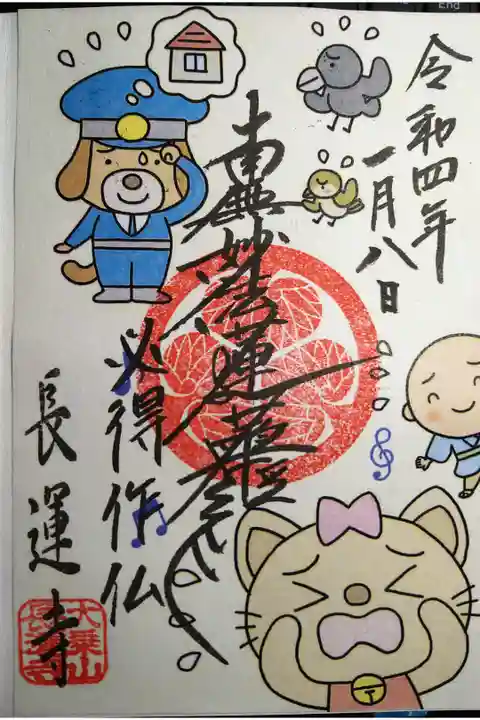 令和四年
一月八日
南無妙法蓮華経
必得作仏
長運寺
End